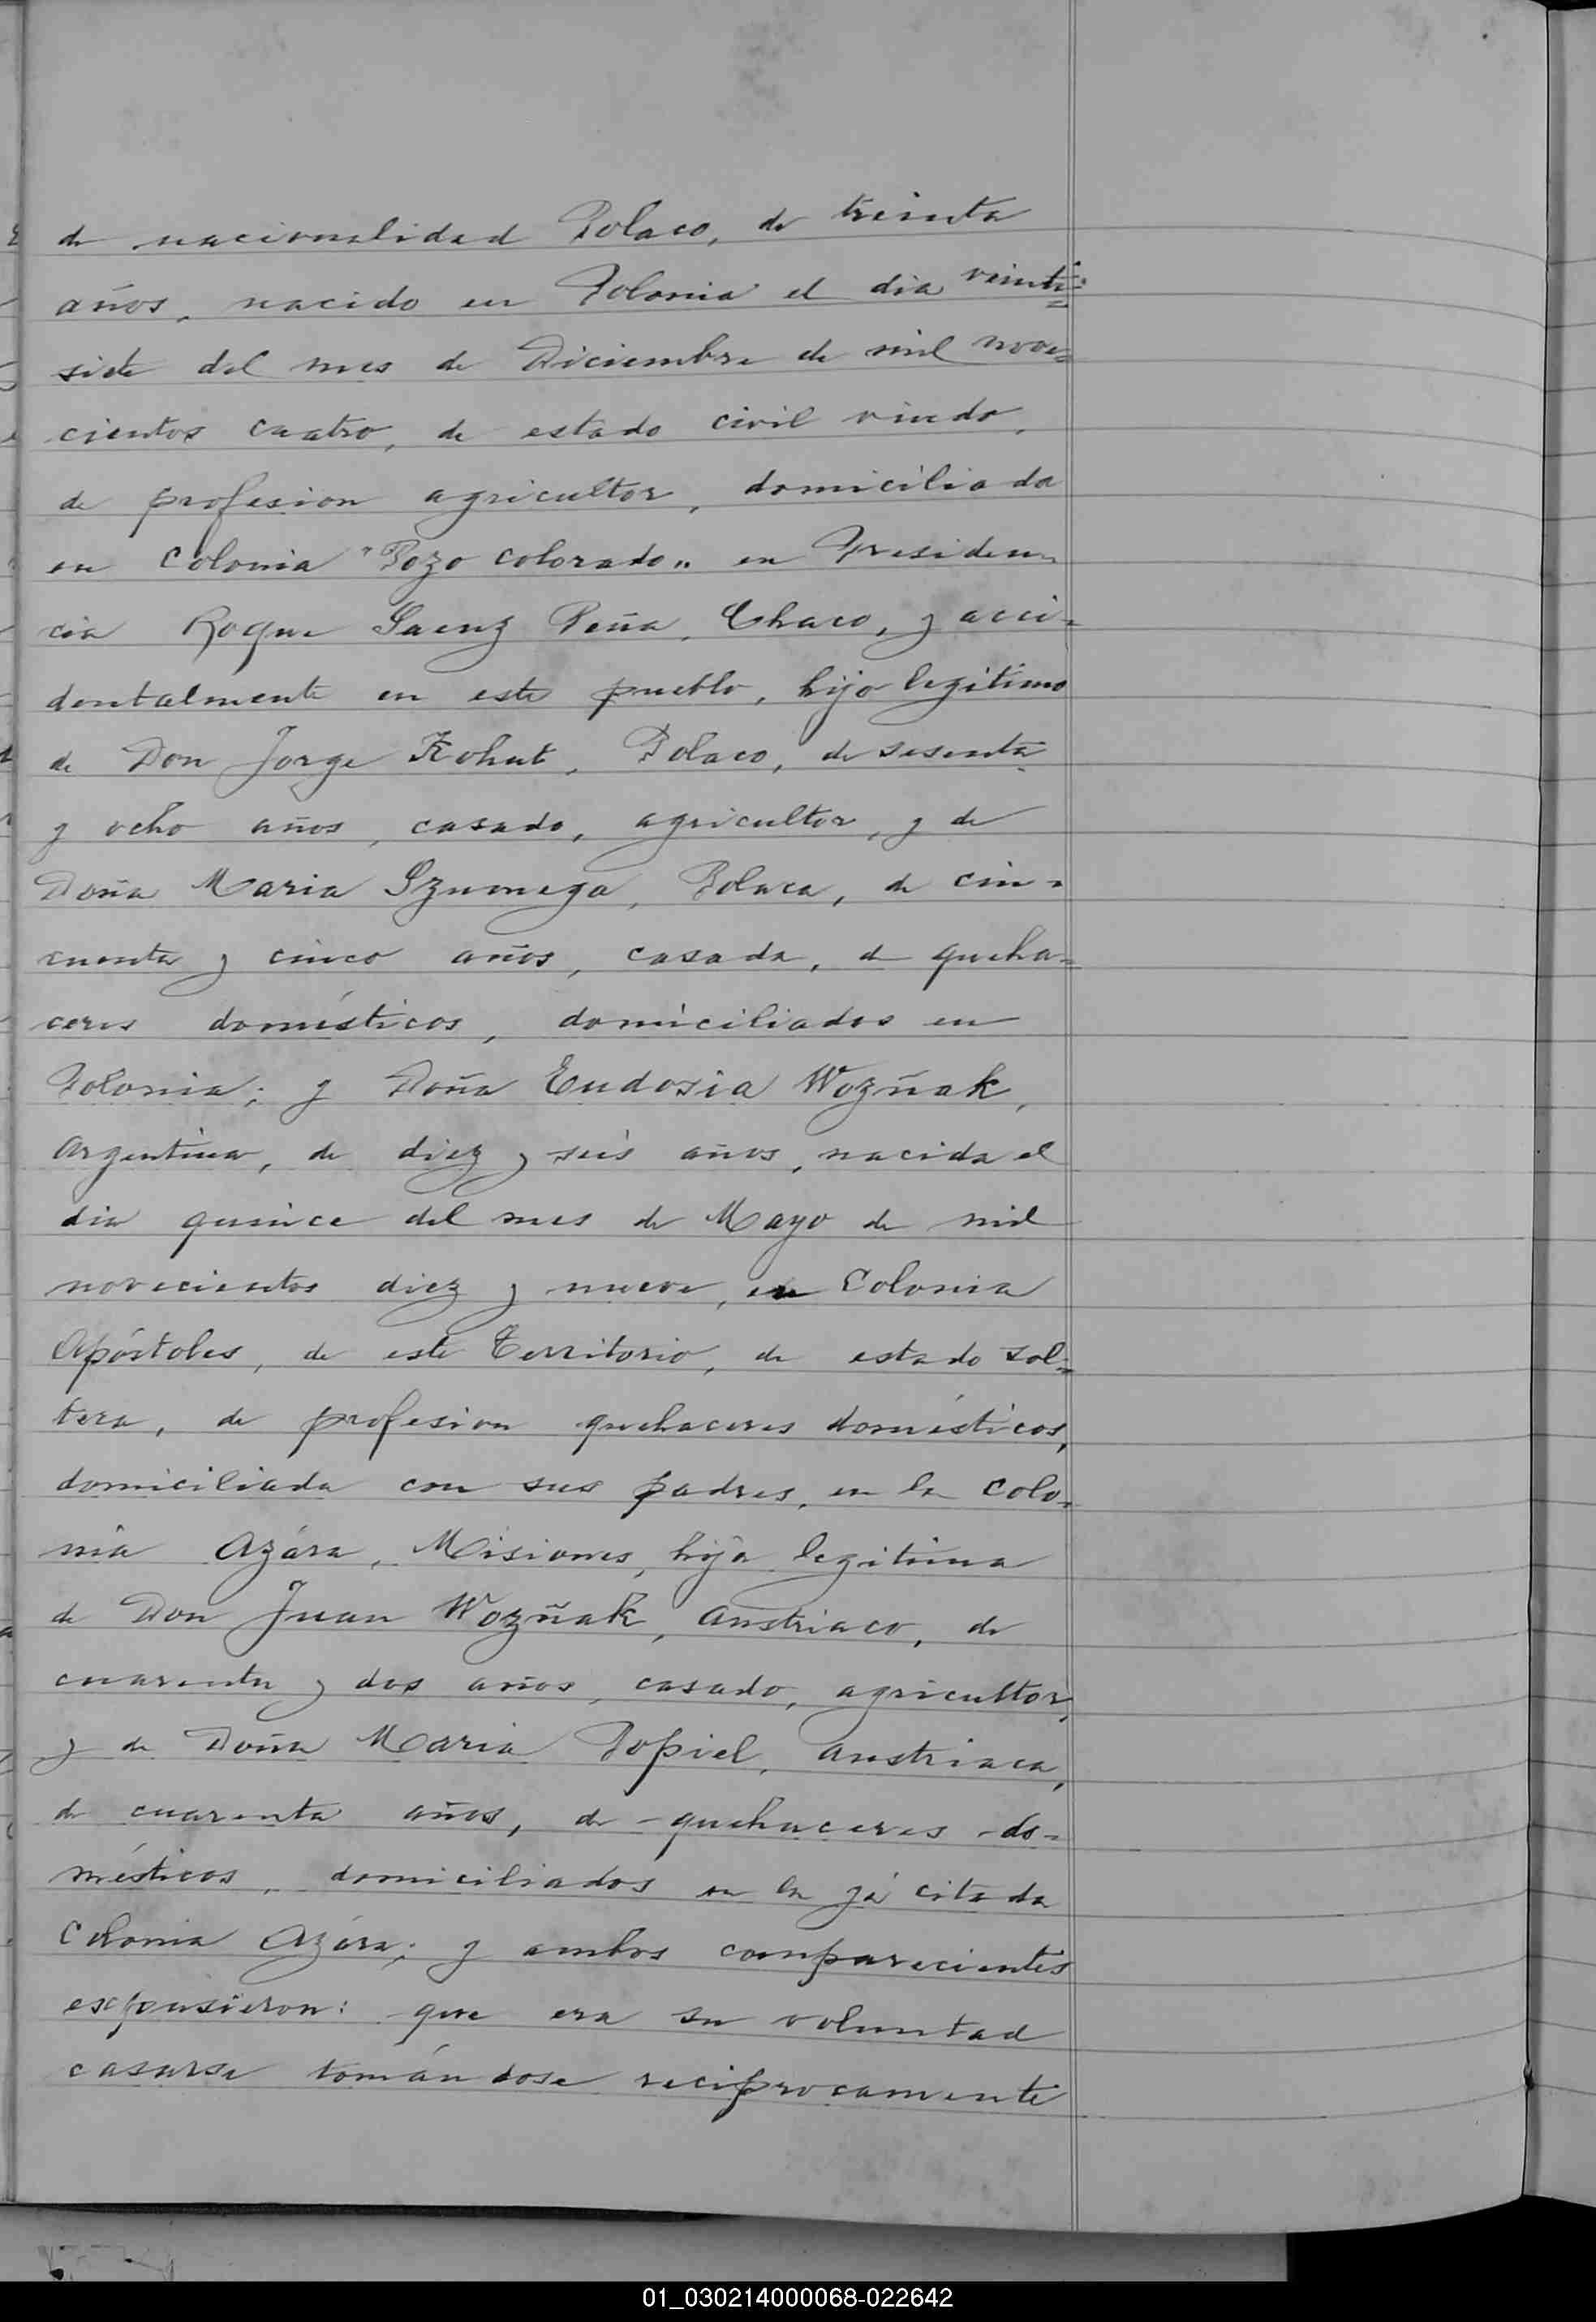 de nacionalidad Polaco, de treinta
años, nacido en Polonia el dia veinti=
siete del mes de Diciembre de mil nove=
cientos cuatro, de estado civil viudo,
de profesion agricultor, domiciliado
en Colonia "Pozo colorado" en Presiden=
cia Roque Saenz Peña, Chaco, y acci=
dentalmente en este pueblo, hijo legitimo
de Don Jorge Kohut, Polaco, de sesenta
y ocho años, casado, agricultor, y de
Doña Maria Szumega, Polaca, de cin=
cuenta y cinco años, casada, de queha=
ceres domésticos, domiciliados en
Polonia; y Doña Eudosia Wozñak,
Argentina, de diez y seis años, nacida el
dia quince del mes de Mayo de mil
novecientos diez y nueve, en Colonia
Apóstoles, de este Territorio, de estado sol=
tera, de profesion quehaceres domésticos,
domiciliada con sus padres, en la Colo=
nia Azára, Misiones, hija legitima
de Don Juan Wozñak, Austriaco, de
cuarenta y dos años, casado, agricultor,
y de Doña Maria Popiel, Austriaca,
de cuarenta años, de quehaceres do=
mésticos, domiciliados en la já citada
Colonia Azára; y ambos comparecientes
expusieron: que era su voluntad
casarse tomándose reciprocamente
01_030214000068-022642